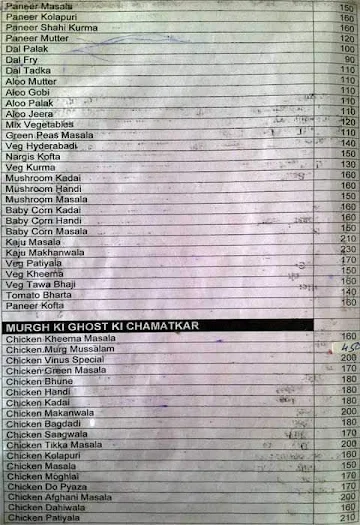 Paneer Masala 150
Paneer Kolapuri 160
Paneer Shahi Kurma 160
Paneer Mutter 120
Dal Palak 100
Dal Fry 90
Dal Tadka 110
Aloo Mutter 110
Aloo Gobi 110
Aloo Palak 110
Aloo Jeera 110
Mix Vegetables 120
Green Peas Masala 110
Veg Hyderabadi 140
Nargis Kofta 150
Veg Kurma 130
Mushroom Kadai 160
Mushroom Handi 160
Mushroom Masala 150
Baby Corn Kadai 160
Baby Corn Handi 160
Baby Corn Masala 150
Kaju Masala 210
Kaju Makhanwala 230
Veg Patiyala 170
Veg Kheema 150
Veg Tawa Bhaji 160
Tomato Bharta 140
Paneer Kofta 160
MURGH KI GHOST KI CHAMATKAR
Chicken Kheema Masala 160
Chicken Murg Mussalam 450
Chicken Vinus Special 200
Chicken Green Masala 170
Chicken Bhune 180
Chicken Handi 180
Chicken Kadai 180
Chicken Makanwala 200
Chicken Bagdadi 180
Chicken Saagwala 170
Chicken Tikka Masala 200
Chicken Kolapuri 160
Chicken Masala 150
Chicken Moghlai 170
Chicken Do Pyaza 170
Chicken Afghani Masala 200
Chicken Dahiwala 160
Chicken Patiyala 210